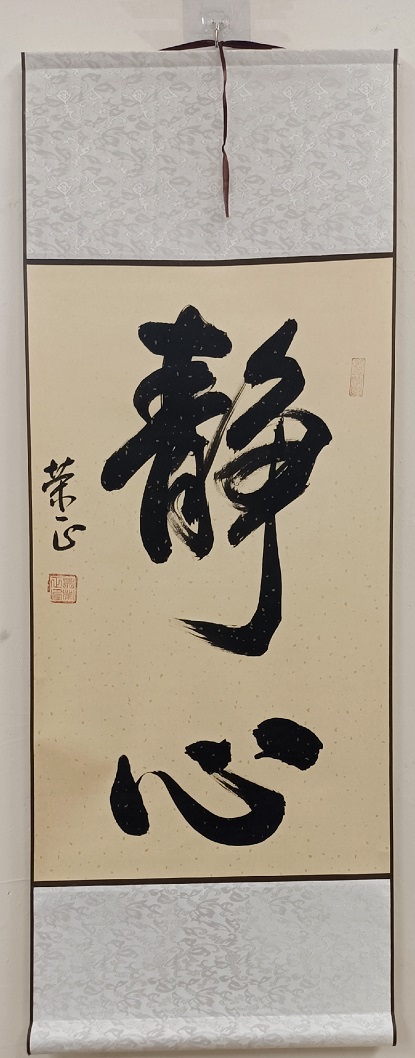 静心
荣正